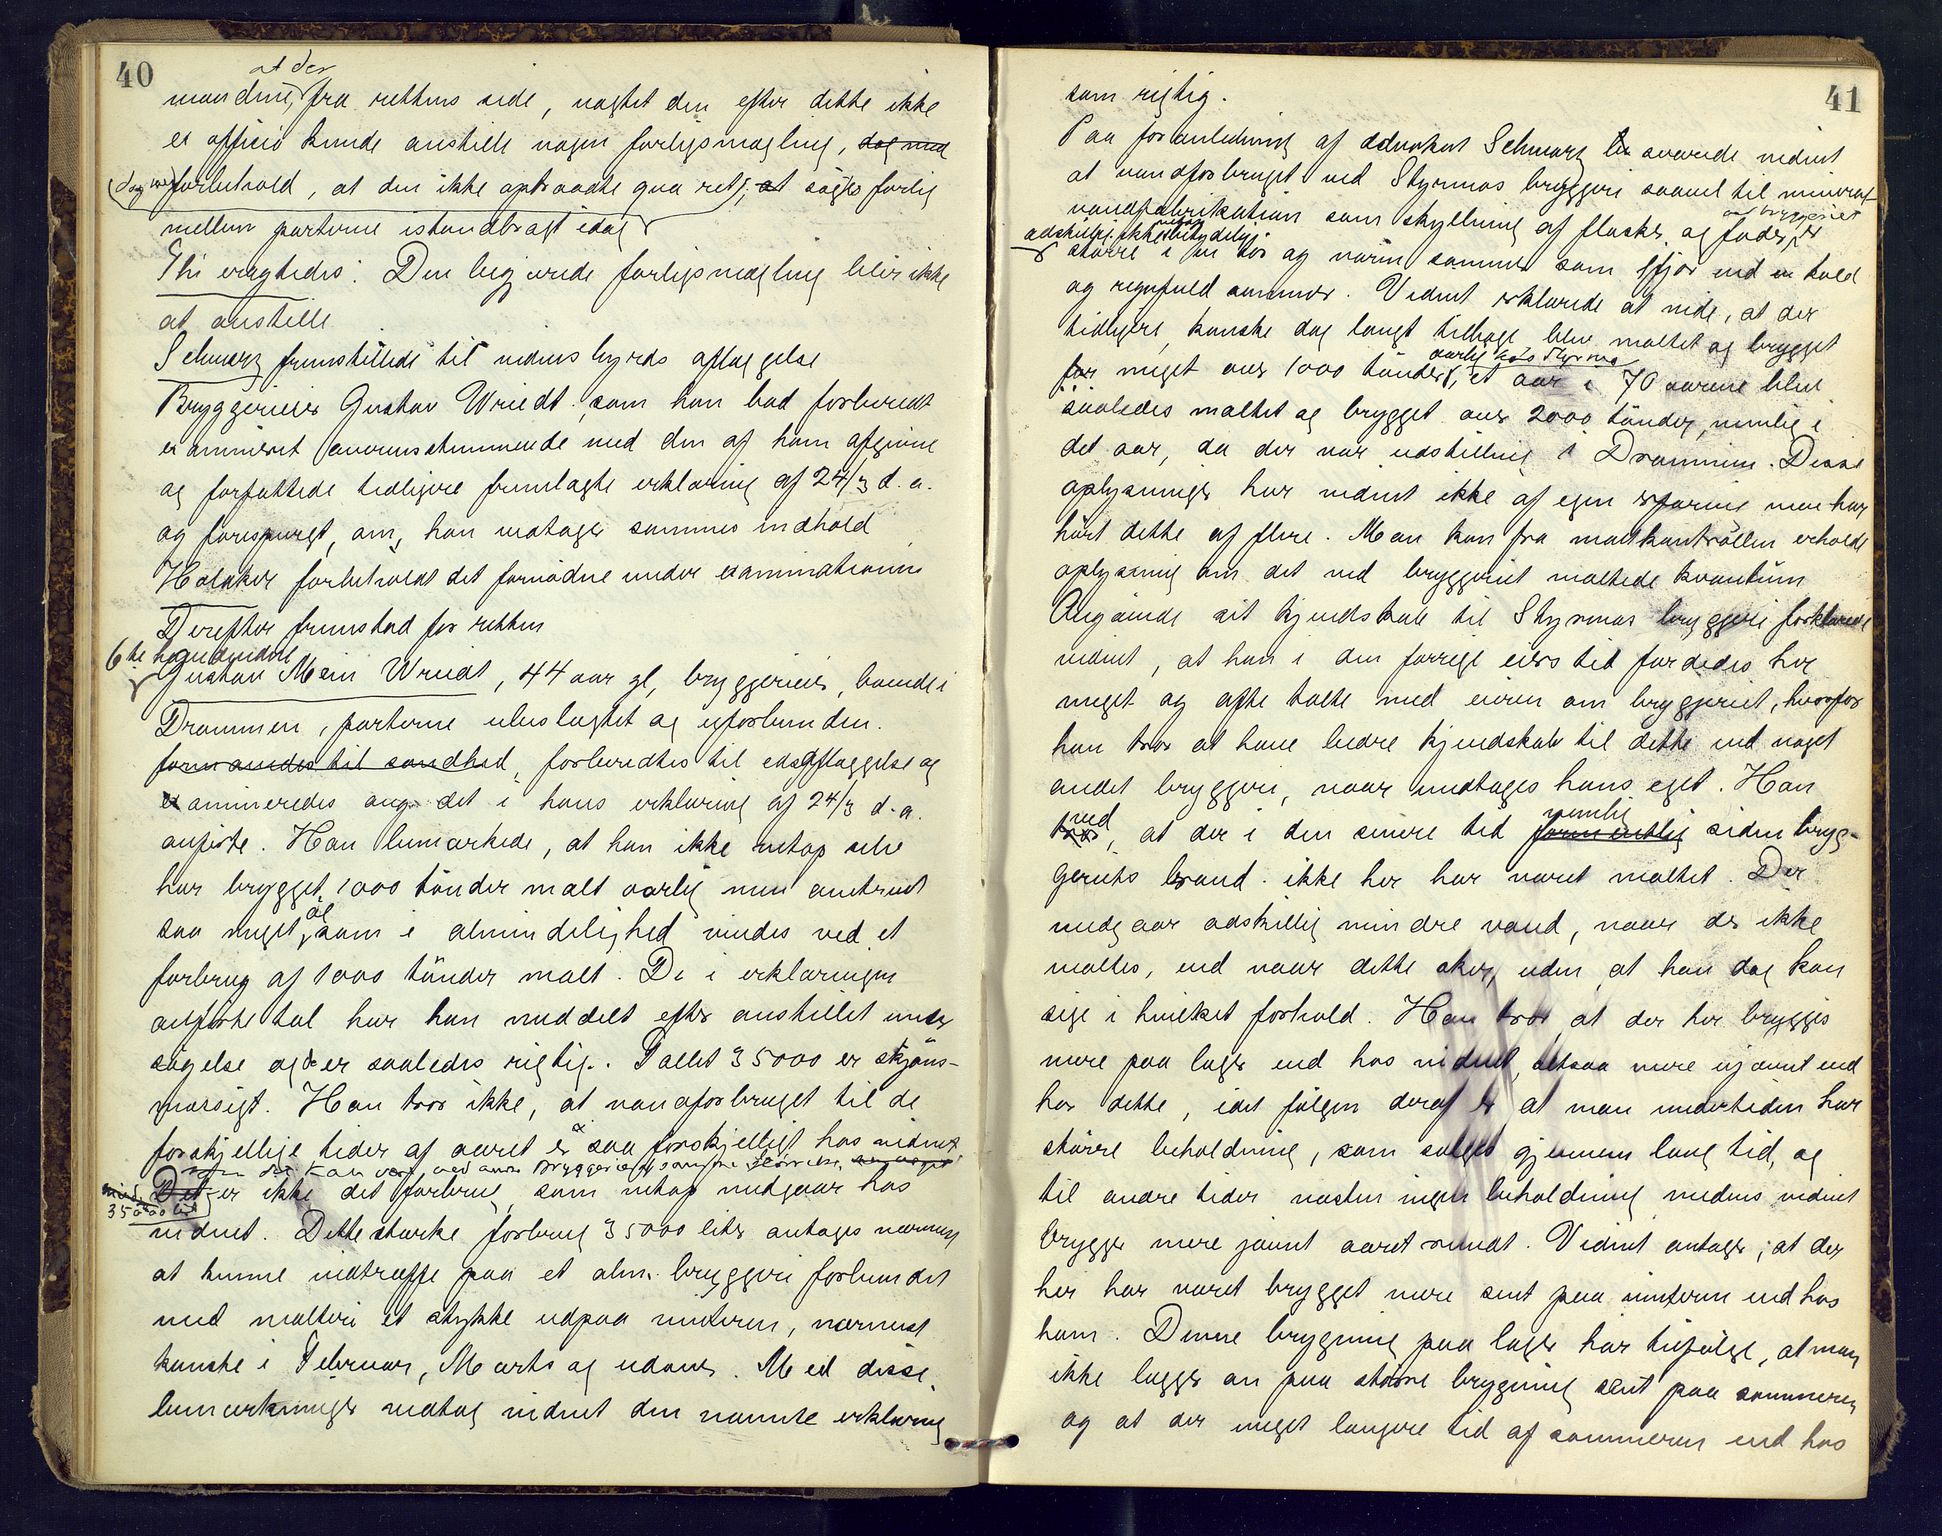 40
at der
mandene, fra rettens side, uagtet den efter dette ikke
ex officio kunde anstille nogen forligsmægling, dog med
(dog med forbehold, at den ikke optraadte qua ret), at søges forlig
mellem parterne istandbragt idag
Thi eragtedes: Den begjærede forligsmægling blir ikke
at anstille
Schwarz fremstillede til vidnesbyrds aflæggelse
Bryggerieier Gustav Wriedt, som han bad foreheredt
examineret overensstemmende med den af ham afgivne
og forfattede tidligere fremlagte erklæring af 24/3 d.a.
og forespurgt, om han vedtager sammes indhold
Holaker forbeholdt det fornødne under examinationen
Derefter fremstod for retten
6te hovedvidne
Gustav Mein Wriedt, 44 aar gl, bryggerieier, boende i
Drammen, parterne ubeslægtet og uforbunden.
formanedes til sandhed, forberedtes til edsaflæggelse og
examineredes ang. det i hans erklæring af 24/3 d.a.
anførte. Han bemærkede, at han ikke netop selv
har brygget 1000 tønder malt aarlig men omtrent
saa meget øl som i almindelighed vindes ved et
forbrug af 1000 tønder malt. De i erklæringen
anførte tal har han meddelt efter anstillet under
søgelse og er saaledes rigtig. Tallet 35000 er skjøns-
mæssigt. Han tror ikke, at vandforbruget til de
forskjellige tider af aaret er saa forskjelligt hos vidnet,
som det kan være ved andre bryggerier af samme størrelse,
med 35000 lit
Det er ikke det forbrug som netop medgaar hos
vidnet. Dette stærke forbrug 35000 liter antages nærmest
at kunne indtræffe paa et alm. bryggeri forbundet
med malteri et stykke udpaa vinteren, nærmest
kanske i Februar, Marts og udover. Med disse
bemærkninger vedtog vidnet den nævnte erklæring
41
som rigtig.
Paa foranledning af advokat Schwarz svarede vidnet
at vandforbruget ved Styrmos bryggeri saavel til mineral
vandfabrikation som skyllning af flasker og fade,
af bryggeriet
adskillig, ikke ubetydelig,
større i en tør og varm sommer som ifjor end en kold
og regnfuld sommer. Vidnet erklærede at vide, at der
tidligere, kanske dog langt tilbage blev maltet og brygget
aarlig hos Styrmo
for meget over 1000 tønder, et aar i 70 aarene blev
saaledes maltet og brygget over 2000 tønder, nemlig i
det aar, da der var udstilling i Drammen. Disse
oplysninger har vidnet ikke af egen erfaring men har
hørt dette af flere. Man kan fra maltkontrollen erholde
oplysning om det ved bryggeriet maltede kvantum
Angaaende sit kjendskab til Styrmos bryggeri forklarede
vidnet, at han i den forrige eiers tid færdedes her
meget og ofte talte med eieren om bryggeriet, hvorfor
han tror at have bedre kjendskab til dette end noget
andet bryggeri, naar undtages hans eget. Han
ved
tror, at der i den senere tid formentlig siden bryg-
nemlig
geriets brand ikke her har været maltet. Der
medgaar adskillig mindre vand, naar der ikke
maltes, end naar dette sker, uden at han dog kan
sige i hvilket forhold. Han tror at der her brygges
mere paa lager end hos vidnet, altsaa mere ujævnt end
hos dette, idet følgen deraf er at man undertiden har
større beholdning, som sælges gjennem lang tid, og
til andre tider næsten ingen beholdning medens vidnet
brygger mere jævnt aaret rundt. Vidnet antager, at der
her har været brygget mere sent paa vinteren end hos
ham. Denne brygning paa lager har tilfølge, at man
ikke lægger an paa større brygning sent paa sommeren
og at der meget længere tid af sommeren end hos